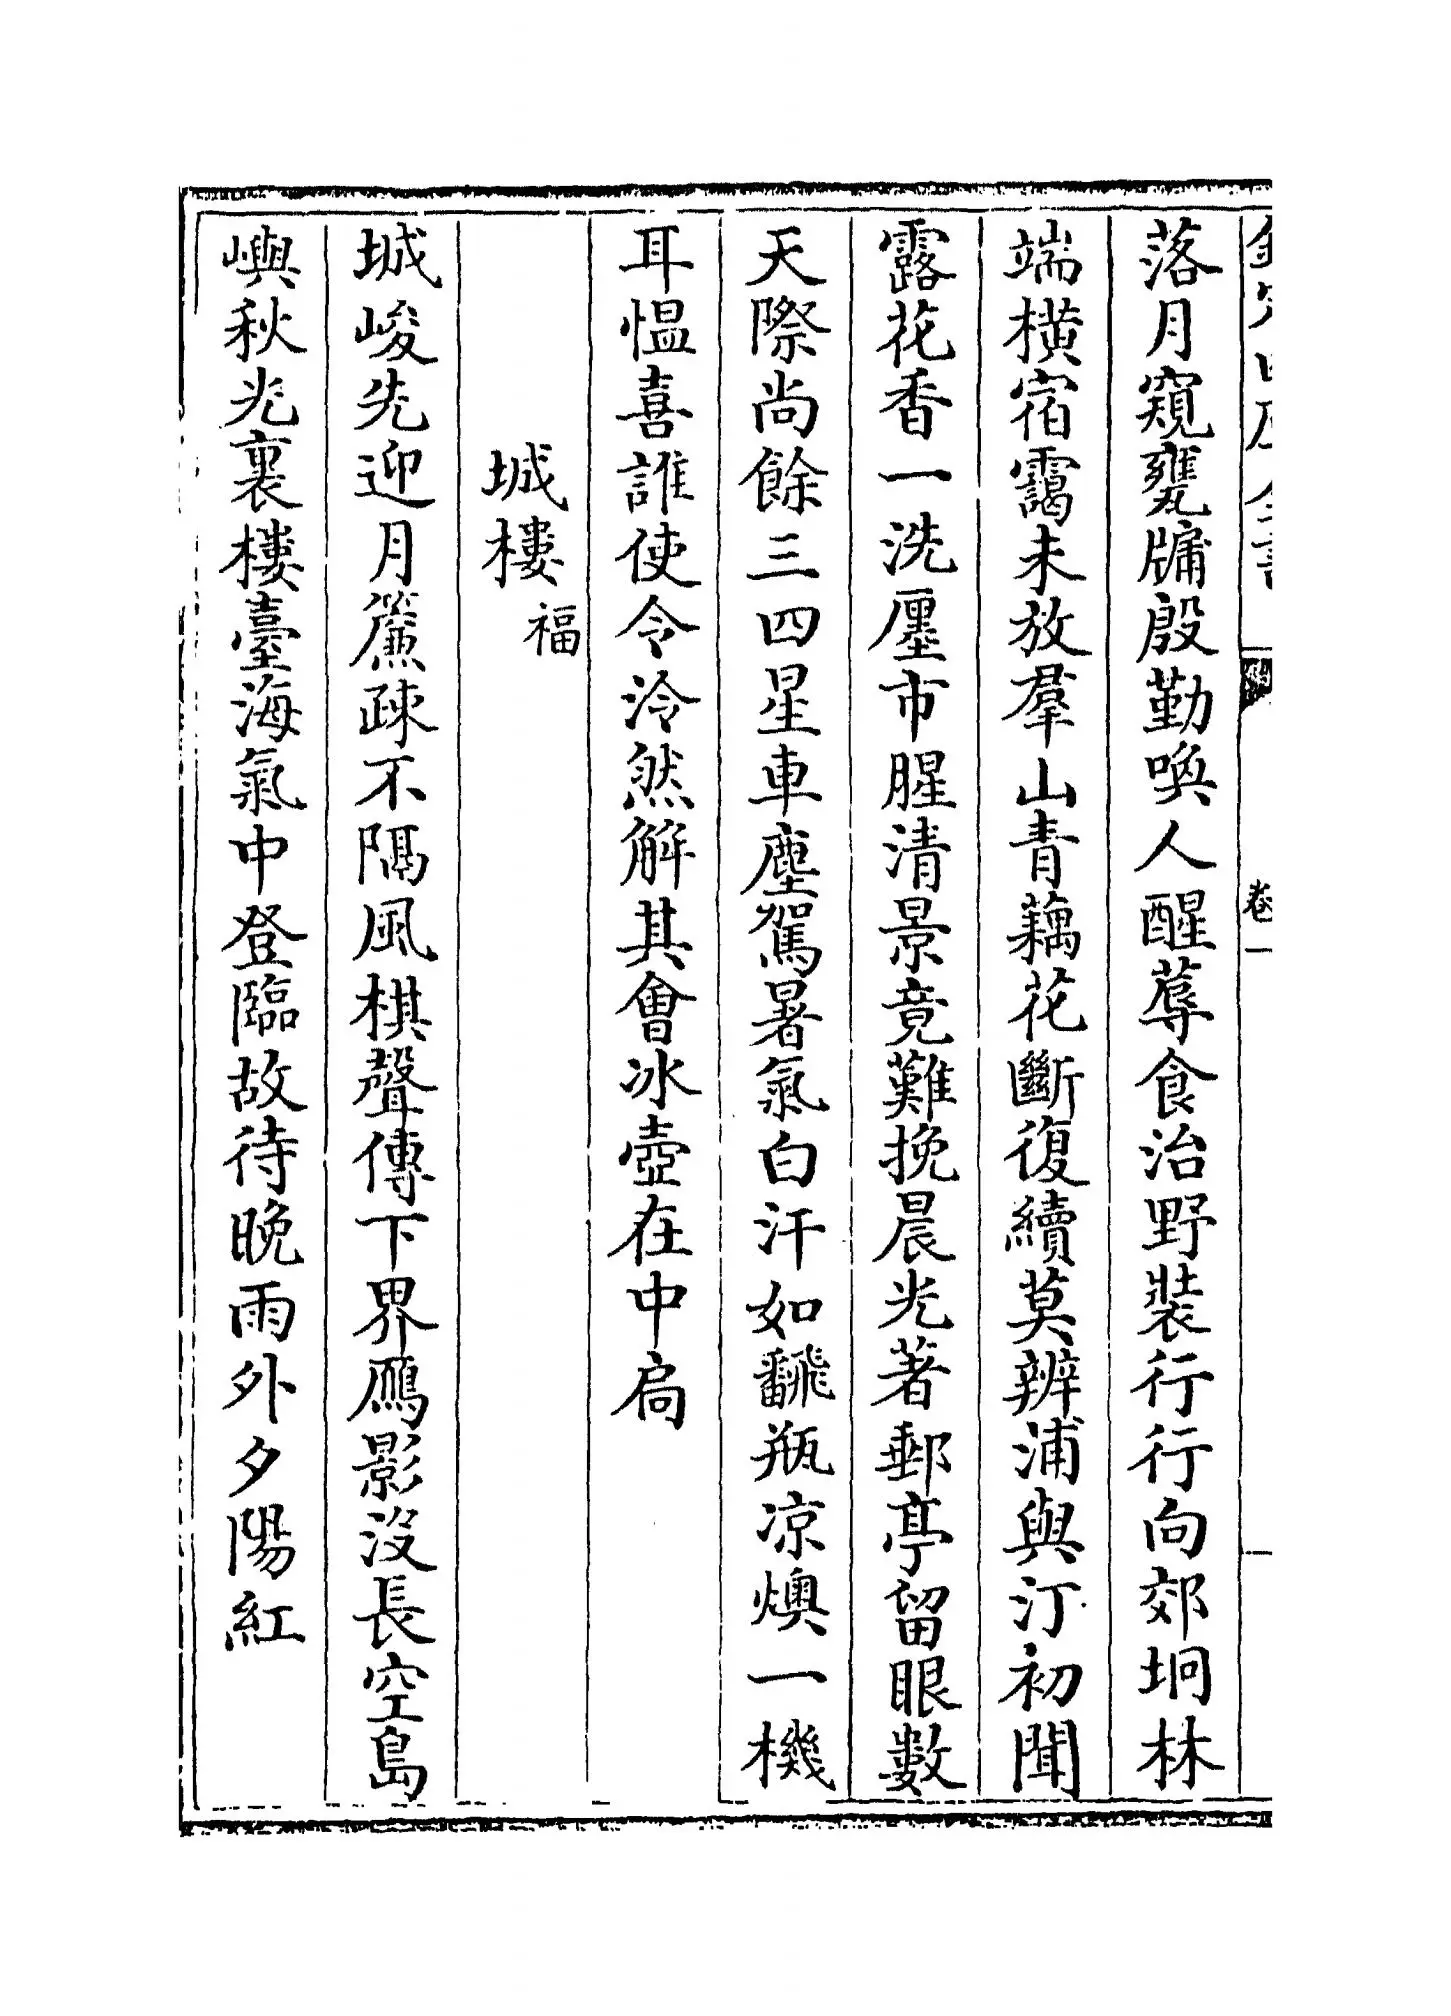 卷一
落月窺甕牗殷勤喚人醒蓐食治野裝行行向郊坰林
端橫宿靄未放羣山青藕花斷復續莫辨浦與汀初聞
露花香一洗㕓市腥清景竟難挽晨光著郵亭留眼數
天際尚餘三四星車塵駕暑氣白汗如飜瓶凉燠一機
耳愠喜誰使令泠然解其會冰壺在中扃
城樓福
城峻先迎月簾疎不隔風棋聲傳下界鴈影没長空島
嶼秋光裏樓臺海氣中登臨故待晚雨外夕陽紅